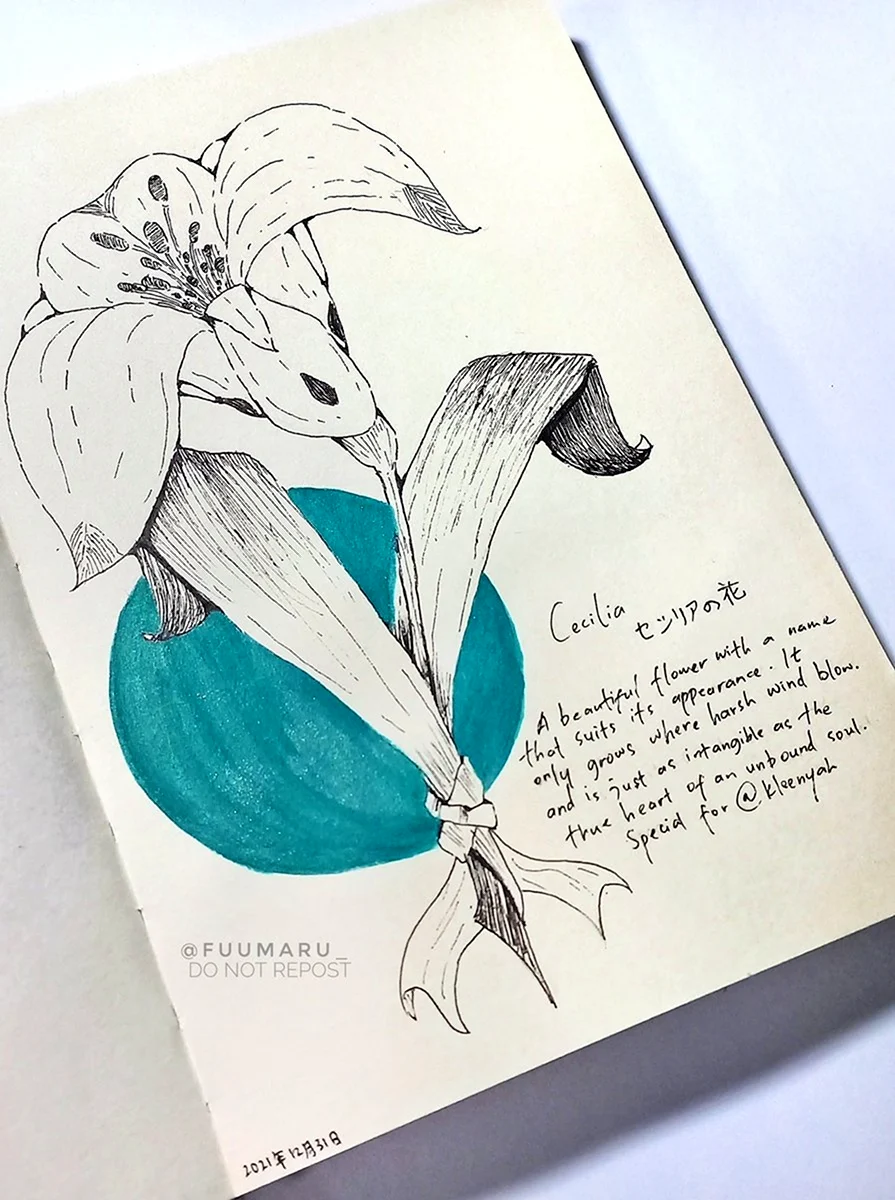 Cecilia
セツリアの花
A beautiful flower with a name
that suits its appearance. It
only grows where harsh wind blow.
and is just as intangible as the
true heart of an unbound soul.
Special for @kleenyah
@FUUMARU_
DO NOT REPOST
2021年12月31日